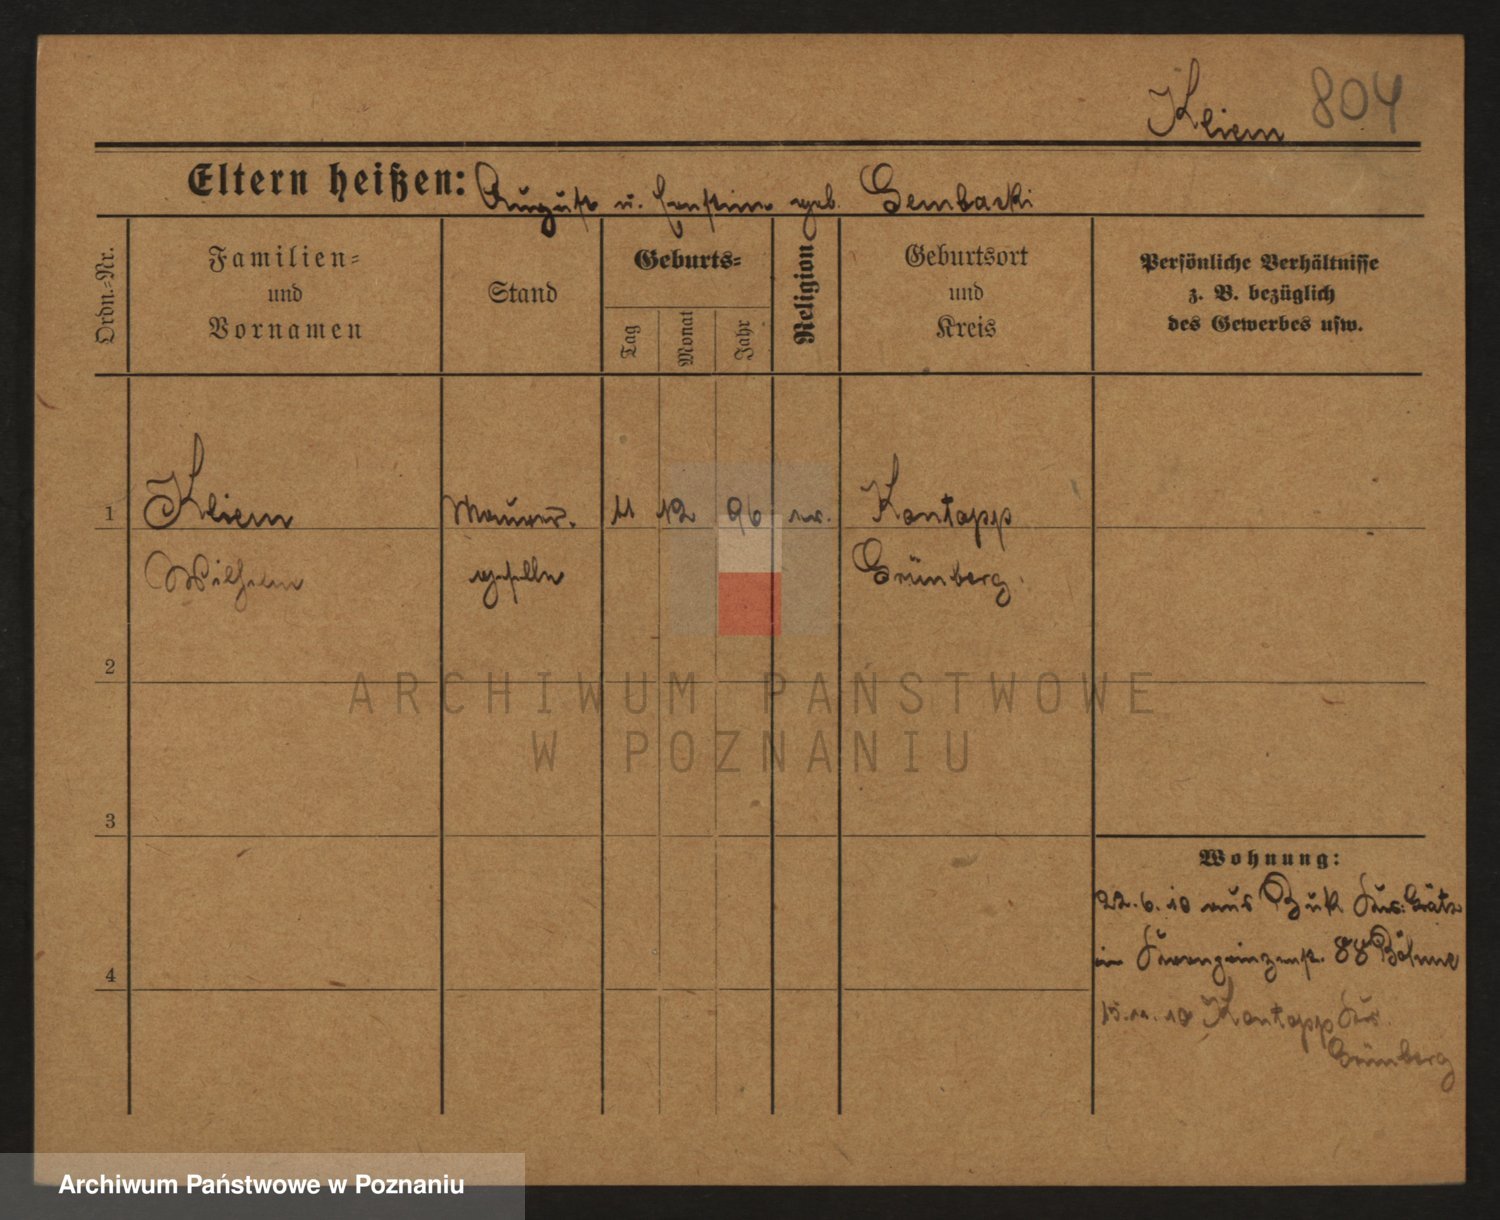 Kliem 804
Eltern heißen: August u. Ernstine geb. Sembacki
Ordn.-Nr.
Familien-
und
Vornamen
Stand
Geburts-
Tag
Monat
Jahr
Religion
Geburtsort
und
Kreis
Persönliche Verhältnisse
z. B. bezüglich
des Gewerbes usw.
1 Kliem Maurer- 11 12 96 ev. Kontopp
Wilhelm geselle Grünberg
2
3
4
Wohnung:
22.6.10 aus Buk Krs. Grätz
in Kronprinzenstr. 88 Böhme
15.11.10 Kontopp Krs.
Grünberg
ARCHIWUM PAŃSTWOWE
W POZNANIU
Archiwum Państwowe w Poznaniu